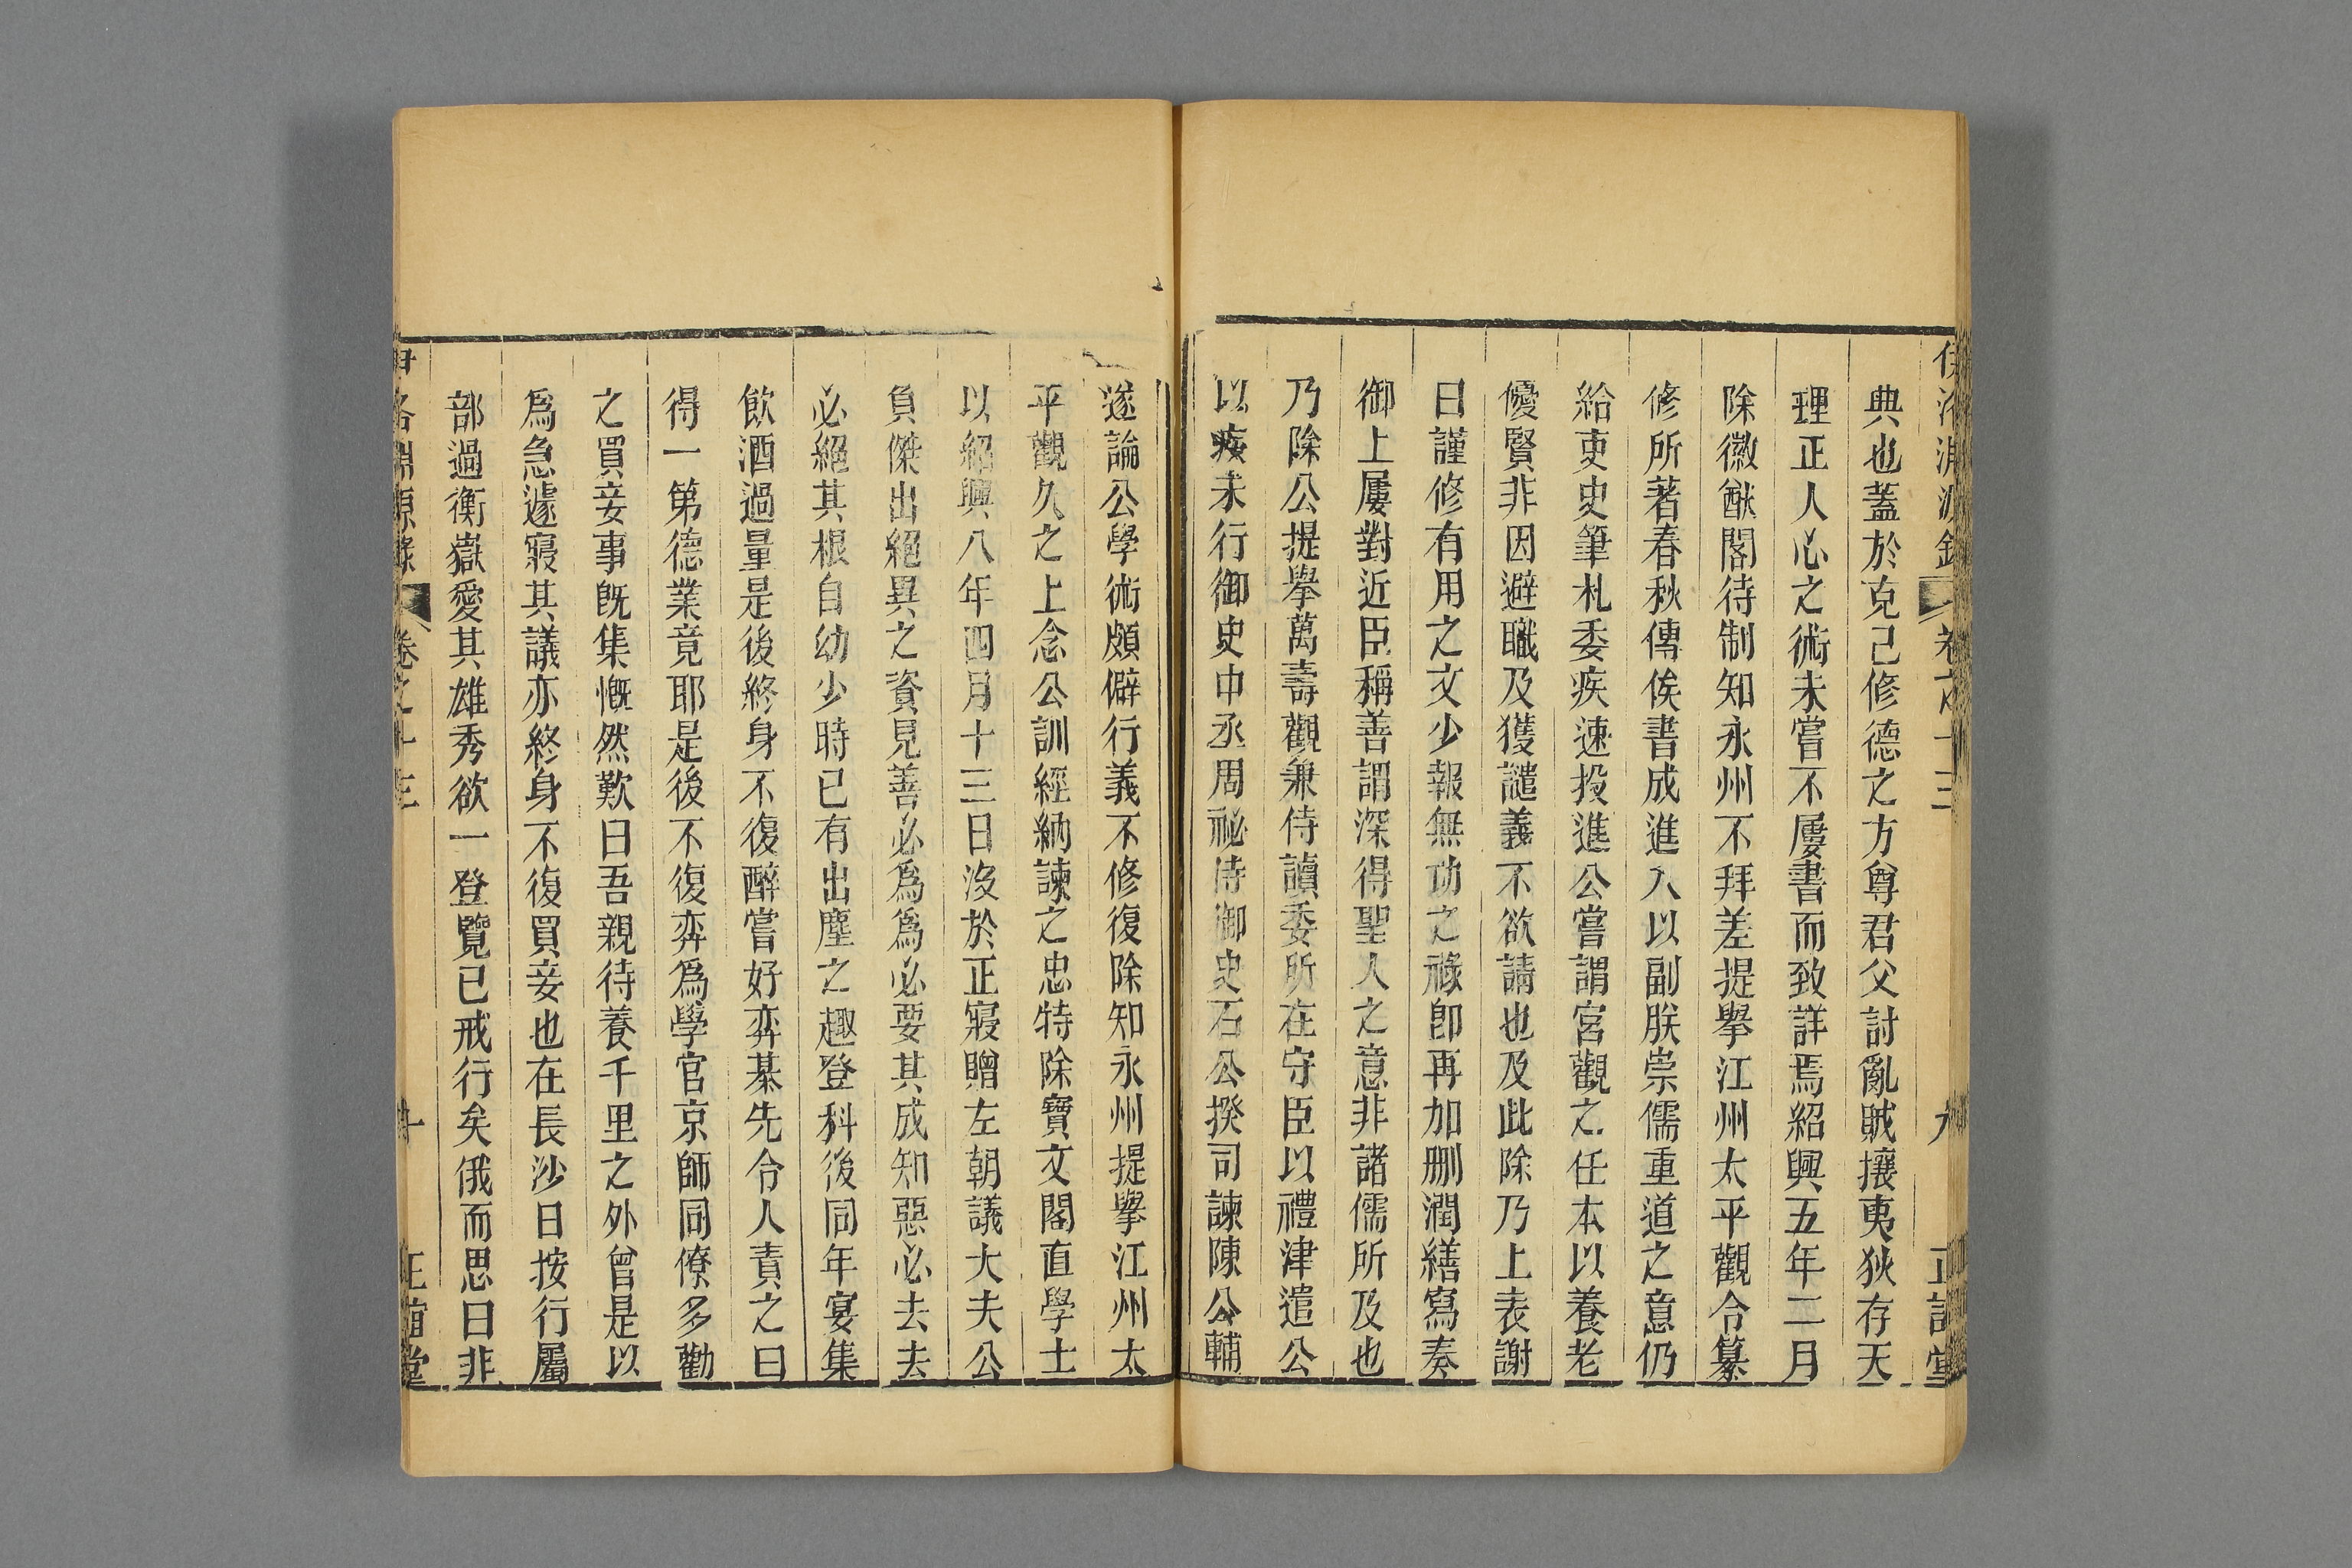 典也蓋於克己修德之方尊君父討亂賊攘夷狄存天
理正人心之術未嘗不屢書而致詳焉紹興五年二月
除徽猷閣待制知永州不拜差提舉江州太平觀令纂
修所著春秋傳俟書成進入以副朕崇儒重道之意仍
給吏史筆札委疾速投進公嘗謂宮觀之任本以養老
優賢非因避職及獲譴義不欲請也及此除乃上表謝
曰謹修有用之文少報無功之祿卽再加刪潤繕寫奏
御上屢對近臣稱善謂深得聖人之意非諸儒所及也
乃除公提擧萬壽觀兼侍讀委所在守臣以禮津遣公
以疾未行御史中丞周祕侍御史石公揆司諫陳公輔
遂論公學術頗僻行義不修復除知永州提擧江州太
平觀久之上念公訓經納諫之忠特除寶文閣直學士
以紹興八年四月十三日沒於正寢贈左朝議大夫公
負傑出絕異之資見善必爲爲必要其成知惡必去去
必絕其根自幼少時已有出塵之趣登科後同年宴集
飮酒過量是後終身不復醉嘗好弈棊先令人責之曰
得一第德業竟耶是後不復弈爲學官京師同僚多勸
之買妾事旣集慨然歎曰吾親待養千里之外曾是以
爲急遽寢其議亦終身不復買妾也在長沙日按行屬
部過衡嶽愛其雄秀欲一登覽已戒行矣俄而思曰非
伊洛淵源錄 卷之十三 十 正誼堂